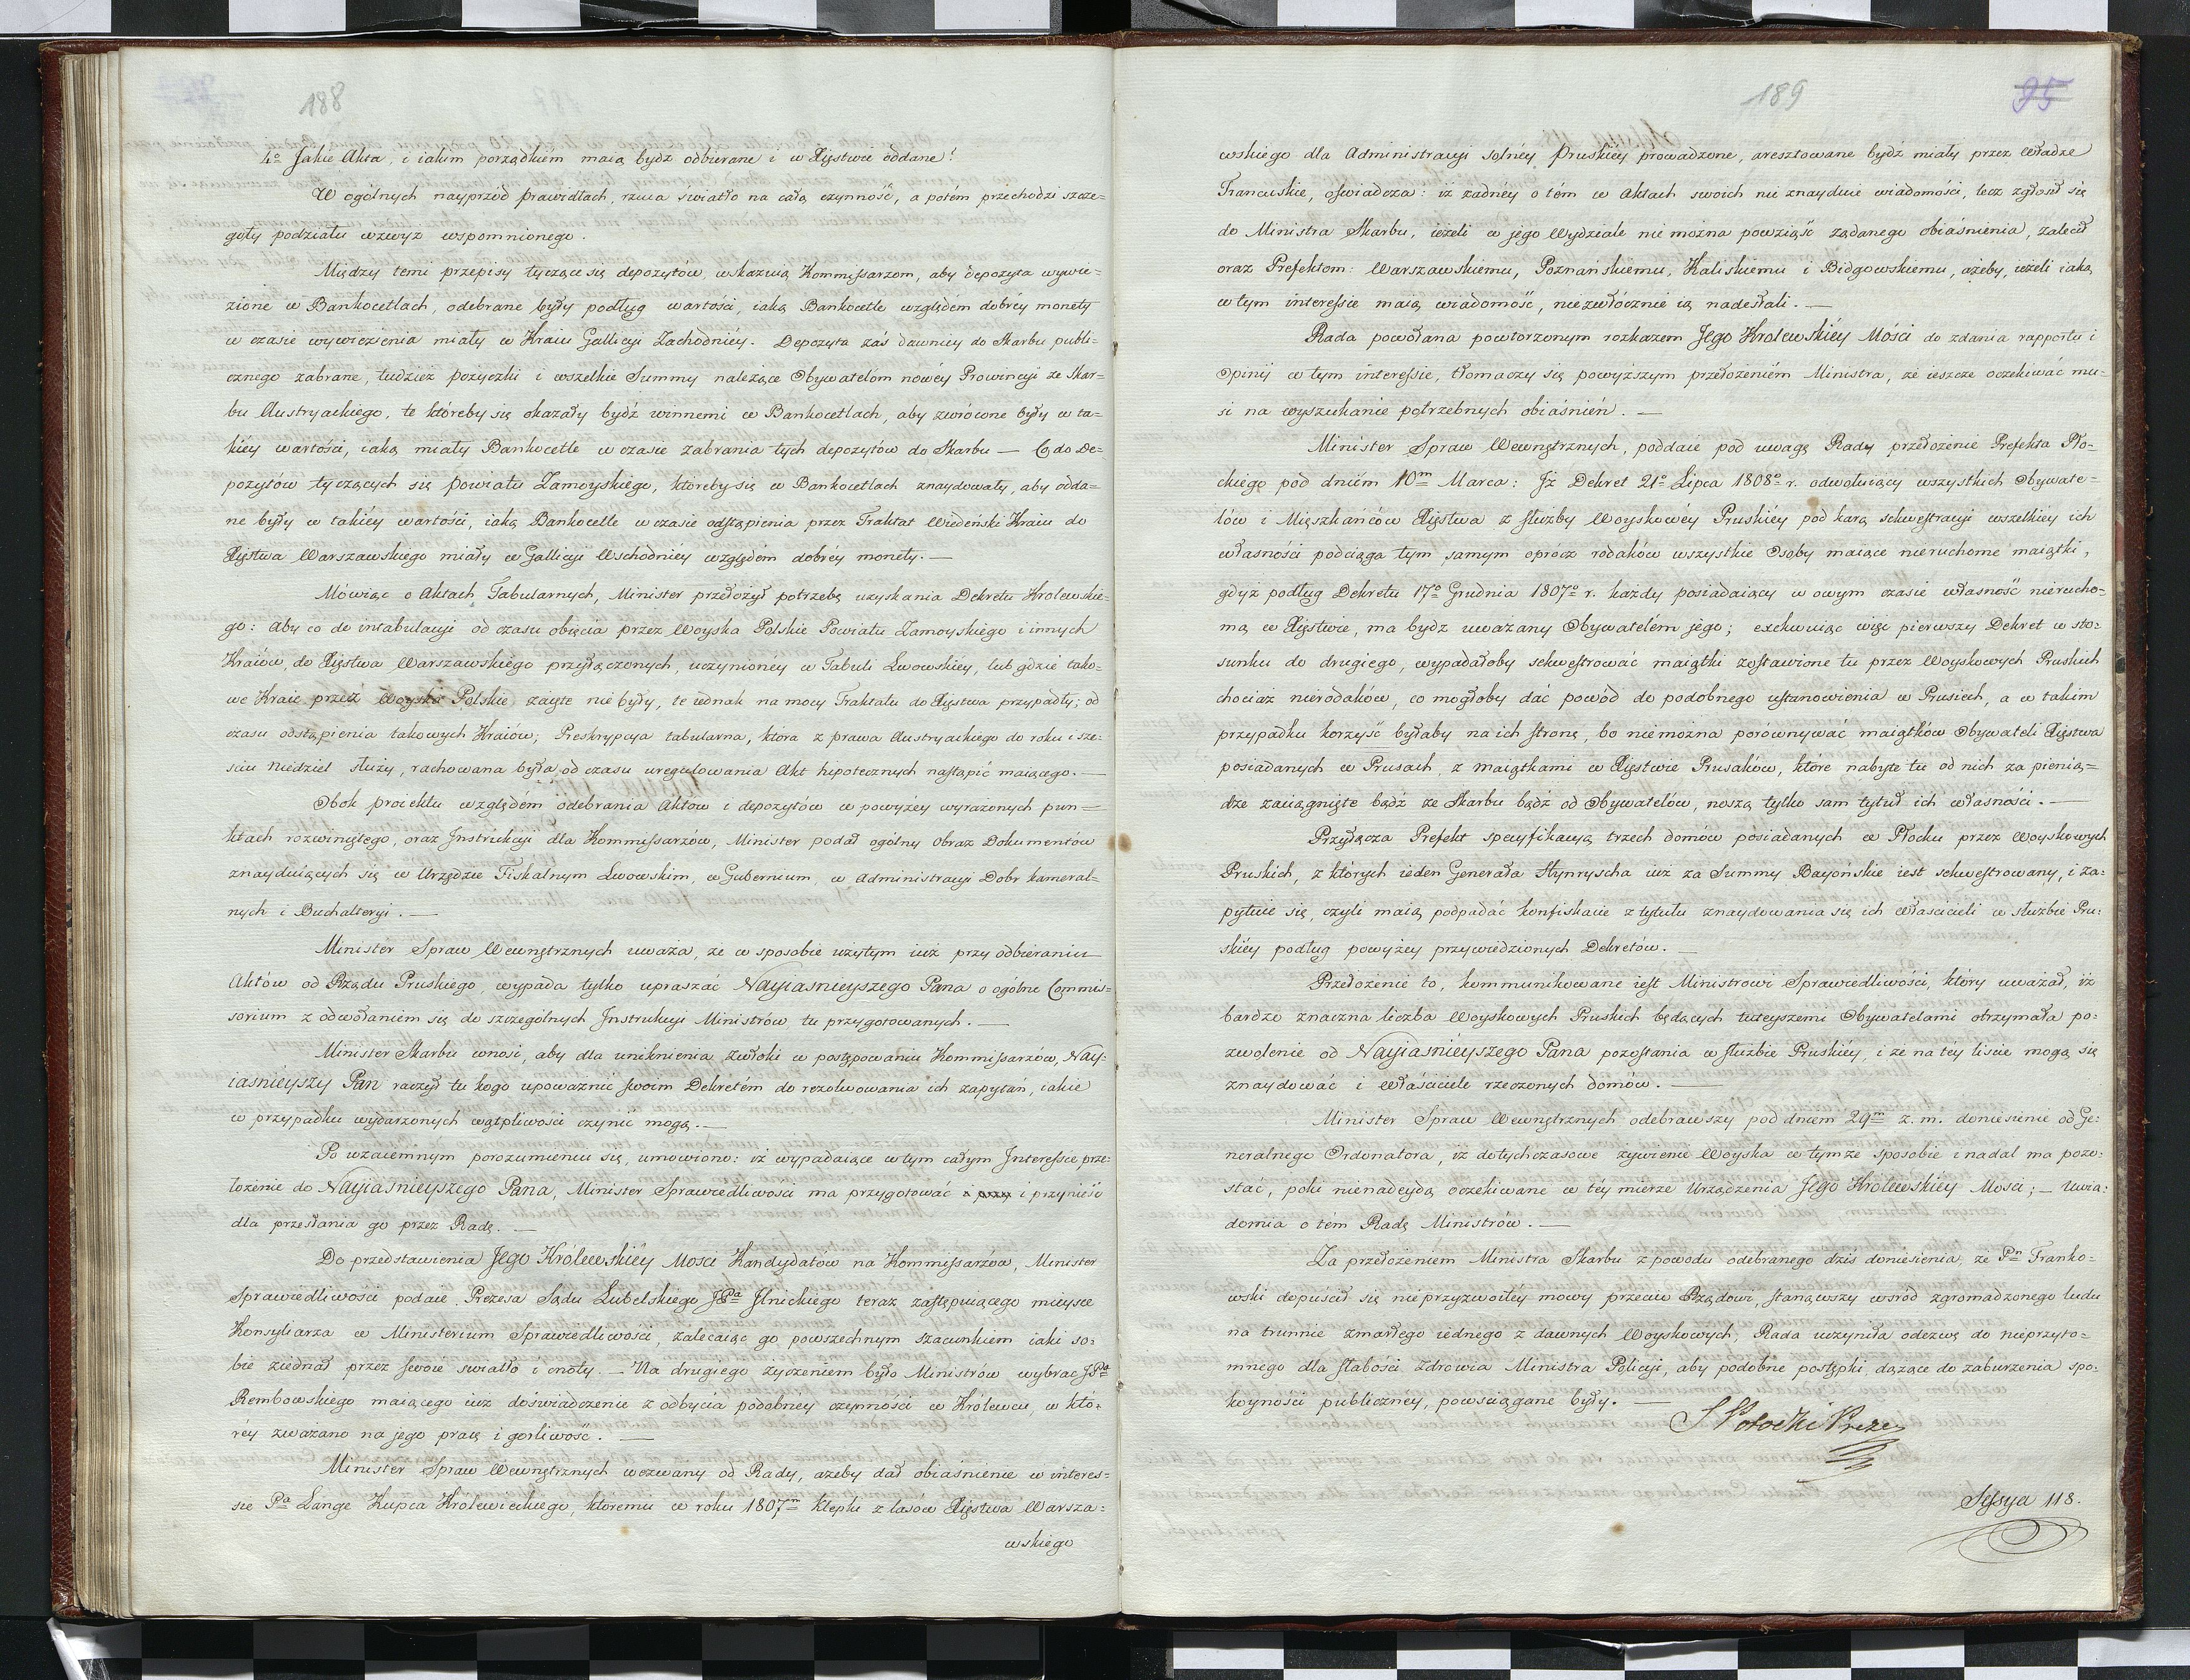 188
4o Jakie Akta, i iakim porządkiem maią bydź odbierane i w Xięstwie oddane?
W ogólnych nayprzód prawidłach, rzuca światło na całą czynność, a potém przechodzi szcze=
guły podziału wzwyż wspomnionego.
Między temi przepisy tyczące się depozytów, wskazuią Kommissarzom, aby depozyta wywie=
zione w Bankocetlach, odebrane były podług wartości, iaką Bankocetle względem dobréy monety
w czasie wywiezienia miały w Kraiu Gallicyi Zachodniéy. Depozyta zaś dawniey do Skarbu publi=
cznego zabrane, tudzież pożyczki i wszelkie Summy należące Obywatelóm nowéy Prowincyi ze Skar=
bu Austryackiego, te któreby się okazały bydź winnemi w Bankocetlach, aby zwrócone były w ta=
kiéy wartości, iaką miały Bankocetle w czasie zabrania tych depozytów do Skarbu — Co do De=
pozytów tyczących się powiatu Zamoyskiego, któreby się w Bankocetlach znaydowały, aby odda=
ne były w takiéy wartości, iaką Bankocetle w czasie odstąpienia przez Traktat Wiedeński Kraiu do
Xięstwa Warszawskiego miały w Gallicyi Wschodniéy względém dobréy monety. —
Mówiąc o Aktach Tabularnych, Minister przełożył potrzebę uzyskania Dekretu Krolewskie=
go: aby co do intabulacyi od czasu obięcia przez Woyska Polskie Powiatu Zamoyskiego i innych
Kraiów, do Xięstwa Warszawskiego przyłączonych, uczynionéy w Tabuli Lwowskiéy, lub gdzie tako=
we Kraie przez Woyska Polskie zaięte nie były, te iednak na mocy Traktatu do Xięstwa przypadły; od
czasu odstąpienia takowych Kraiów; Preskrypcya tabularna, która z prawa Austryackiego do roku i sze=
ściu niedziel służy, rachowana była od czasu uregulowania Akt hipotecznych nastąpić maiącego. —
Obok proiektu względém odebrania Aktow i depozytów w powyżéy wyrażonych pun=
ktach rozwiniętego, oraz Instrukcyi dla Kommissarzów, Minister podał ogólny obraz Dokumentów
znayduiących się w Urzędzie Fiskalnym Lwowskim, w Gubernium, w Administracyi Dobr kameral=
nych i Buchalteryi. —
Minister Spraw Wewnętrznych uważa, że w sposobie użytym iuż przy odbieraniu
Aktów od Rządu Pruskiego, wypada tylko upraszać Nayiaśnieyszego Pana o ogólne Commis=
sorium z odwołaniem się do szczególnych Instrukcyi Ministrów, tu przygotowanych. —
Minister Skarbu wnosi, aby dla uniknienia zwłoki w postępowaniu Kommissarzów, Nay=
iaśnieyszy Pan raczył tu kogo upoważnić swoim Dekretém do rezolwowania ich zapytań, iakie
w przypadku wydarzonych wątpliwości czynić mogą. —
Po wzaiemnym porozumieniu się, umowiono: iż wypadaiące w tym całym Interessie prze=
łożenie do Nayiaśnieyszego Pana, Minister Sprawiedliwości ma przygotować i przynieść
dla przesłania go przez Radę. —
Do przedstawienia Jego Królewskiéy Mości Kandydatów na Kommissarzów, Minister
Sprawiedliwości podaie Prezesa Sądu Lubelskiego JPa Ilnickiego teraz zastępuiącego mieysce
Konsyliarza w Ministerium Sprawiedliwości, zalecaiąc go powszechnym szacunkiem iaki so=
bie ziednał przez swoie światło i cnoty. — Na drugiego życzeniem było Ministrów wybrać JPa
Rembowskiego maiącego iuż doświadczenie z odbycia podobnéy czynności w Królewcu, w któ=
réy zważano na jego pracę i gorliwość. —
Minister Spraw Wewnętrznych wezwany od Rady, ażeby dał obiaśnienie w interes=
sie Pa Lange Kupca Królewieckiego, któremu w roku 1807m klepki z lasów Xięstwa Warsza=
wskiego
189
95
wskiego dla Administracyi solnéy Pruskiéy prowadzone, aresztowane bydź miały przez Władze
Francuskie, oświadcza: iż żadnéy o tém w Aktach swoich nie znayduie wiadomości, lecz zgłosił się
do Ministra Skarbu, ieżeli w jego Wydziale nie można powziąść żądanego obiaśnienia, zalecił
oraz Prefektom: Warszawskiemu, Poznańskiemu, Kaliskiemu i Bidgowskiemu, ażeby, ieżeli iaką
w tym interessie maią wiadomość, niezwłócznie ią nadesłali. —
Rada powołana powtórzonym rozkazem Jego Krolewskiéy Mości do zdania rapportu i
Opinii w tym interessie, tłomaczy się powyższym przełożeniém Ministra, że ieszcze oczekiwać mu=
si na wyszukanie potrzebnych obiaśnień. —
Minister Spraw Wewnętrznych, poddaie pod uwagę Rady przełożenie Prefekta Pło=
ckiego pod dniém 10m Marca: Iż Dekret 21o Lipca 1808o r. odwołuiący wszystkich Obywate=
lów i Mieszkańców Xięstwa z służby Woyskowéy Pruskiéy pod karą sekwestracyi wszelkiéy ich
własności podciąga tym samym oprócz rodaków wszystkie Osoby maiące nieruchome maiątki,
gdyż podług Dekretu 17o Grudnia 1807o r. każdy posiadaiący w owym czasie własność nierucho=
mą w Xięstwie, ma bydź uważany Obywatelém jego; exekwuiąc więc pierwszy Dekret w sto=
sunku do drugiego, wypadałoby sekwestrować maiątki zostawione tu przez Woyskowych Pruskich
chociaż nierodaków, co mogłoby dać powód do podobnego ustanowienia w Prusiech, a w takim
przypadku korzyść byłaby na ich stronę, bo nie można porównywać maiątków Obywateli Xięstwa
posiadanych w Prusach, z maiątkami w Xięstwie Prusaków, które nabyte tu od nich za pienią=
dze zaciągnięte bądź ze Skarbu bądź od Obywatelów, noszą tylko sam tytuł ich własności. —
Przyłącza Prefekt specyfikacyą trzech domów posiadanych w Płocku przez Woyskowych
Pruskich, z których ieden Generała Hynryscha iuż za Summy Bayońskie iest sekwestrowany, i za=
pytuie się, czyli maią podpadać konfiskacie z tytułu znaydowania się ich właścicieli w służbie Pru=
skiéy podług powyżey przywiedzionych Dekretów. —
Przełożenie to, kommunikowane iest Ministrowi Sprawiedliwości, który uważał, iż
bardzo znaczna liczba Woyskowych Pruskich będących tuteyszemi Obywatelami otrzymała po=
zwolenie od Nayiaśnieyszego Pana pozostania w służbie Pruskiéy, i że na téy liście mogą się
znaydować i właściciele rzeczonych domów. —
Minister Spraw Wewnętrznych odebrawszy pod dniem 29m z. m. doniesienie od Ge=
neralnego Ordonatora, iż dotychczasowe żywienie Woyska w tymże sposobie i nadal ma pozo=
stać, poki nienadeydą oczekiwane w téy mierze Urządzenia Jego Królewskiéy Mości; — uwia=
domia o tém Radę Ministrów. —
Za przełożeniem Ministra Skarbu z powodu odebranego dziś doniesienia, że Pn Franko=
wski dopuścił się nieprzyzwoitéy mowy przeciw Rządowi, stanąwszy wsród zgromadzonego ludu
na trunnie zmarłego iednego z dawnych Woyskowych, Rada uczyniła odezwę do nieprzyto=
mnego dla słabości Zdrowia Ministra Policyi, aby podobne postępki, dążące do zaburzenia spo=
koyności publicznéy, powsciągane były. —
S Potocki Prezes
Sessya 118.